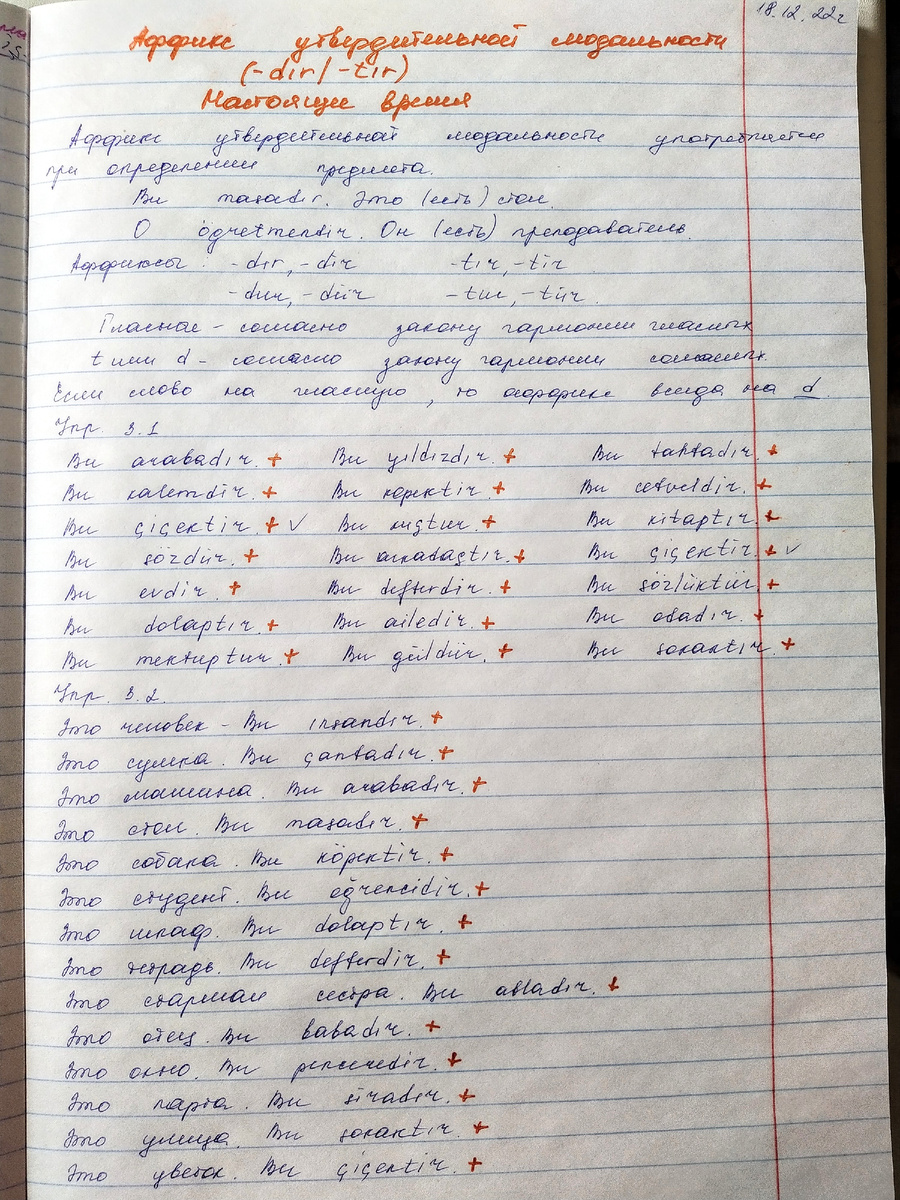 18.12.22г
Аффикс утвердительной модальности
(-dır/-tır)
Настоящие время
Аффикс утвердительной модальности употребляется
при определении предмета.
Bu masadır. Это (есть) стол.
O öğretmendir. Он (есть) преподаватель.
Аффиксы: -dır, -dir -tır, -tir
-dur, -dür -tur, -tür.
Гласная - согласно закону гармонии гласных
t или d - согласно закону гармонии согласных.
Если слово на гласную, то аффикс всегда на d.
Упр. 3.1
Bu arabadır. + Bu yıldızdır. + Bu tahtadır. +
Bu kalemdir. + Bu köpektir. + Bu cetveldir. +
Bu çiçektir. + ✓ Bu kuştur. + Bu kitaptır. +
Bu sözdür. + Bu arkadaştır. + Bu çiçektir. + ✓
Bu evdir. + Bu defterdir. + Bu sözlüktür. +
Bu dolaptır. + Bu ailedir. + Bu odadır. +
Bu mektuptur. + Bu güldür. + Bu sokaktır. +
Упр. 3.2.
Это человек - Bu insandır. +
Это сумка. Bu çantadır. +
Это машина. Bu arabadır. +
Это стол. Bu masadır. +
Это собака. Bu köpektir. +
Это студент. Bu öğrencidir. +
Это шкаф. Bu dolaptır. +
Это тетрадь. Bu defterdir. +
Это старшая сестра. Bu abladır. +
Это отец. Bu babadır. +
Это окно. Bu penceredir. +
Это парта. Bu sıradır. +
Это улица. Bu sokaktır. +
Это цветок. Bu çiçektir. +